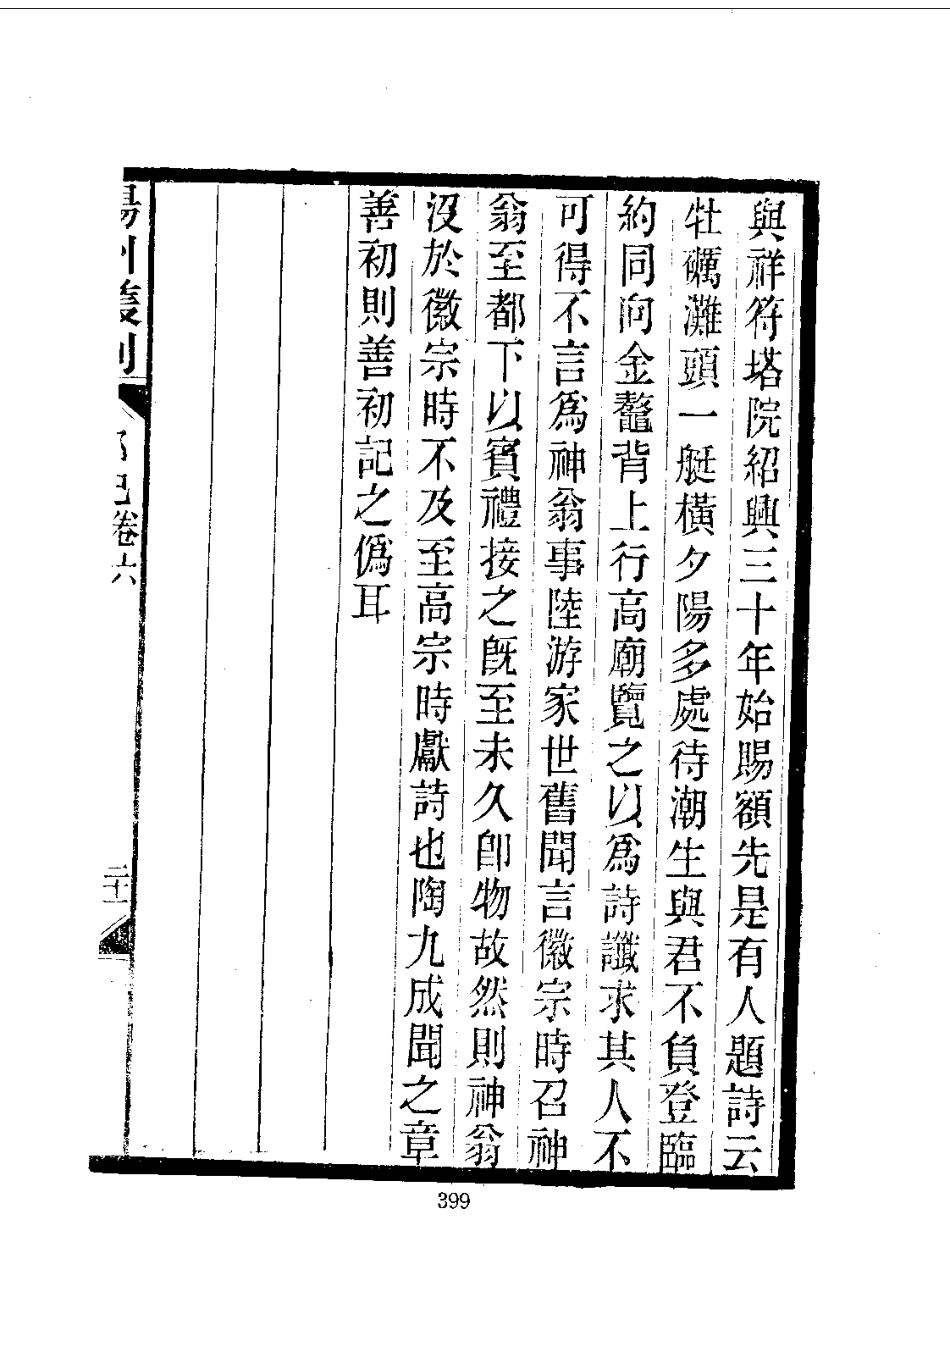 與祥符塔院紹興三十年始賜額先是有人題詩云
牡礪灘頭一艇橫夕陽多處待潮生與君不負登臨
約同向金鼇背上行高廟覽之以爲詩讖求其人不
可得不言爲神翁事陸游家世舊聞言徽宗時召神
翁至都下以賓禮接之旣至未久卽物故然則神翁
沒於徽宗時不及至高宗時獻詩也陶九成聞之章
善初則善初記之僞耳
卷六
二十
399